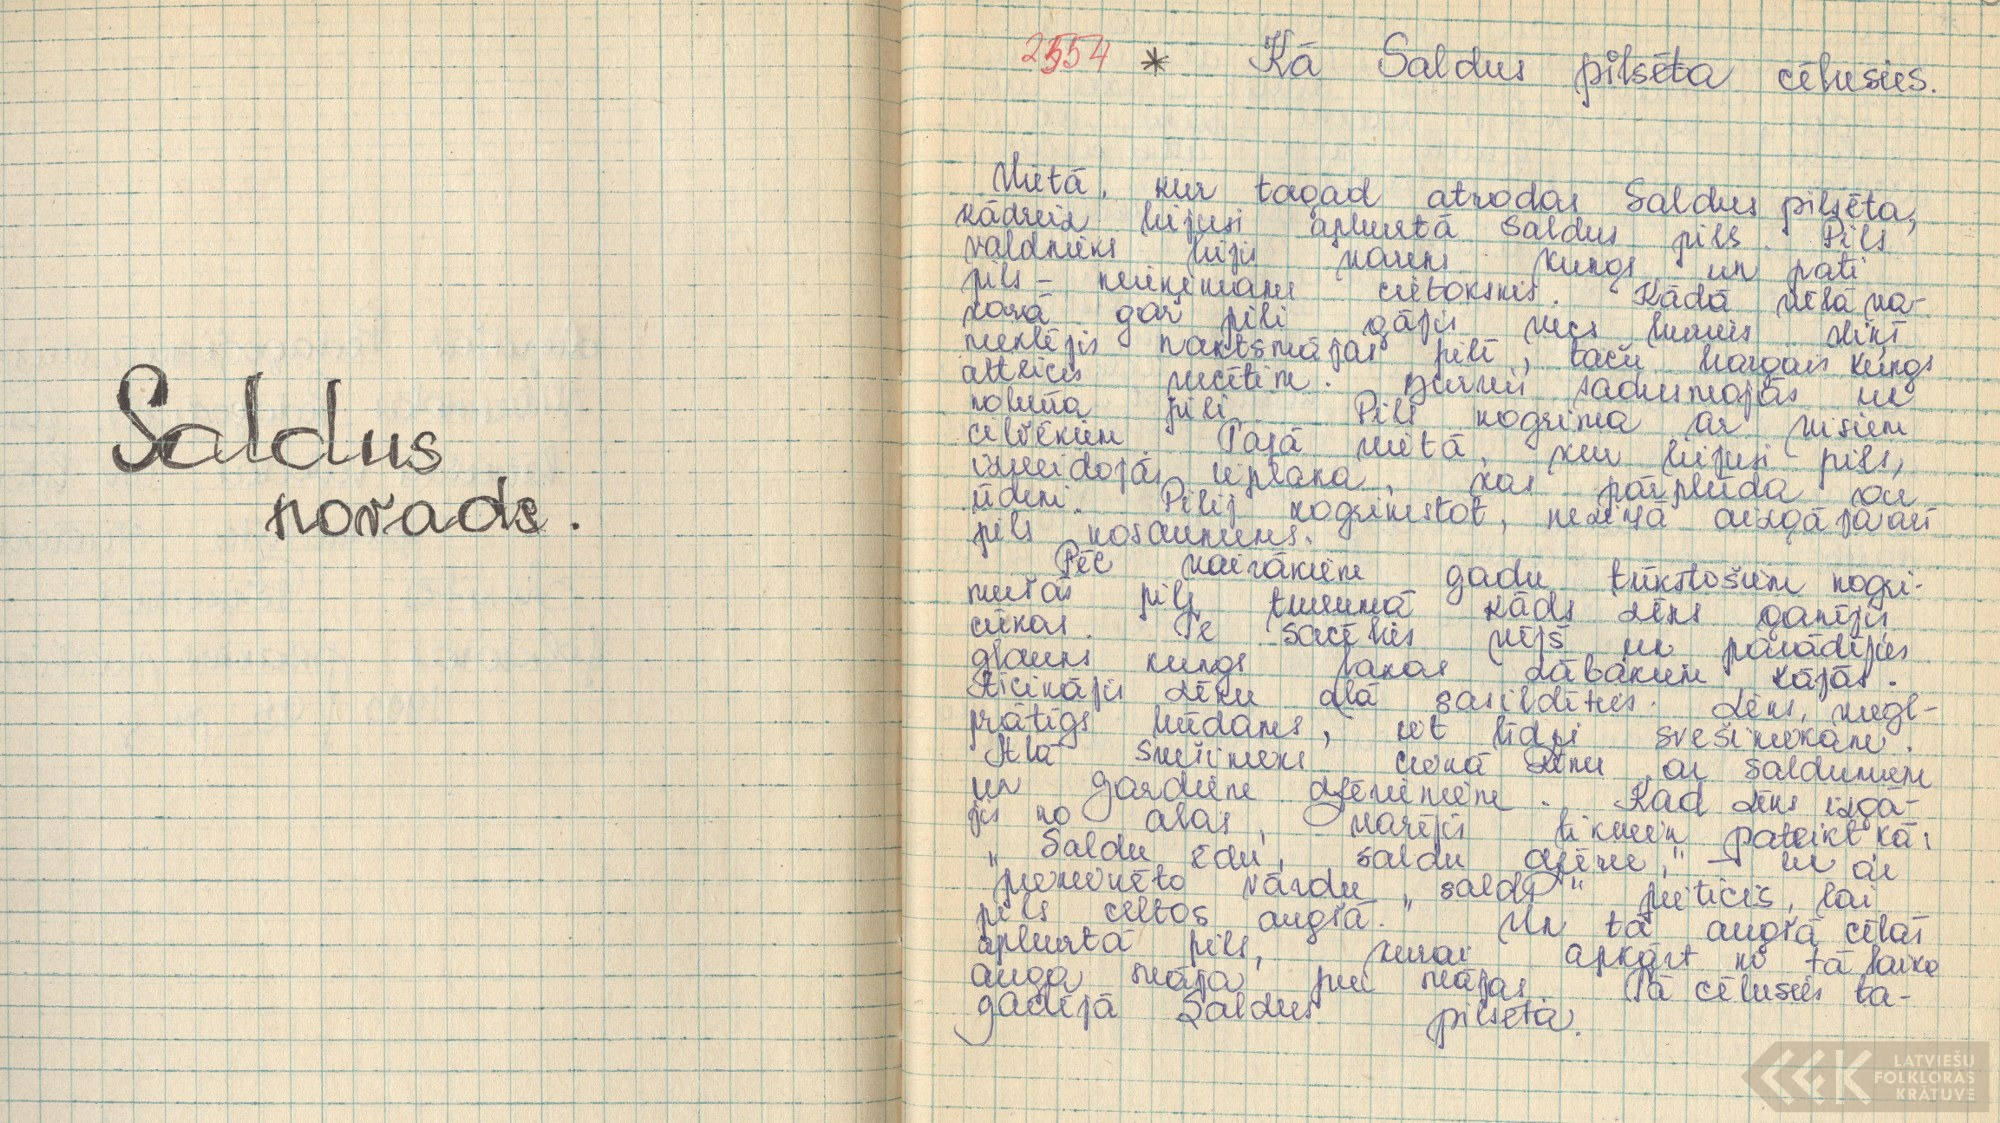 Saldus
novads.
2554 * Kā Saldus pilsēta cēlusies.
Vietā, kur tagad atrodas Saldus pilsēta,
kādreiz bijusi apburtā Saldus pils. Pils
valdnieks bijis varens kungs un pati
pils - neieņemams cietoksnis. Kādā vēlā va-
karā gar pili gājis vecs burvis. Viņš
meklējis naktsmājas pilī, taču bargais kungs
atteicis vecītim. Burvis sadusmojās un
nolādēja pili. Pils nogrima ar visiem
cilvēkiem. Tajā vietā, kur bijusi pils,
izveidojās ieplaka, kas pārplūda ar
ūdeni. Pilij nogrimstot, neziņā aizgāja arī
pils nosaukums.
Pēc vairākiem gadu tūkstošiem nogri-
mušās pils tuvumā kāds zēns ganījis
cūkas. Te sacēlies vējš un parādījies
glauns kungs lakas zābakiem kājās.
Aicinājis zēnu alā sasildīties. Zēns, viegl-
prātīgs būdams, iet līdzi svešiniekam.
Alā svešinieks cienā zēnu ar saldumiem
un gardiem dzērieniem. Kad zēns izgā-
jis no alas, varējis tikai pateikt kā:
"Saldu ēdu, saldu dzēru," - un ar
pieminēto vārdu "salds" pieticis, lai
pils celtos augšā. Un tā augšā cēlās
apburtā pils, kurai apkārt no tā laika
auga māja pie mājas. Tā cēlusies ta-
gadējā Saldus pilsēta.
LATVIEŠU
FOLKLORAS
KRĀTUVE